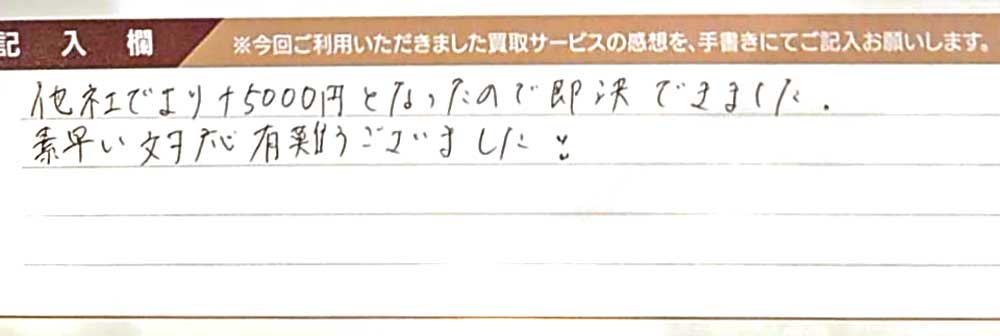 記入欄
※今回ご利用いただきました買取サービスの感想を、手書きにてご記入お願いします。
他社でより+5000円となったので即決できました.
素早い対応有難うございました